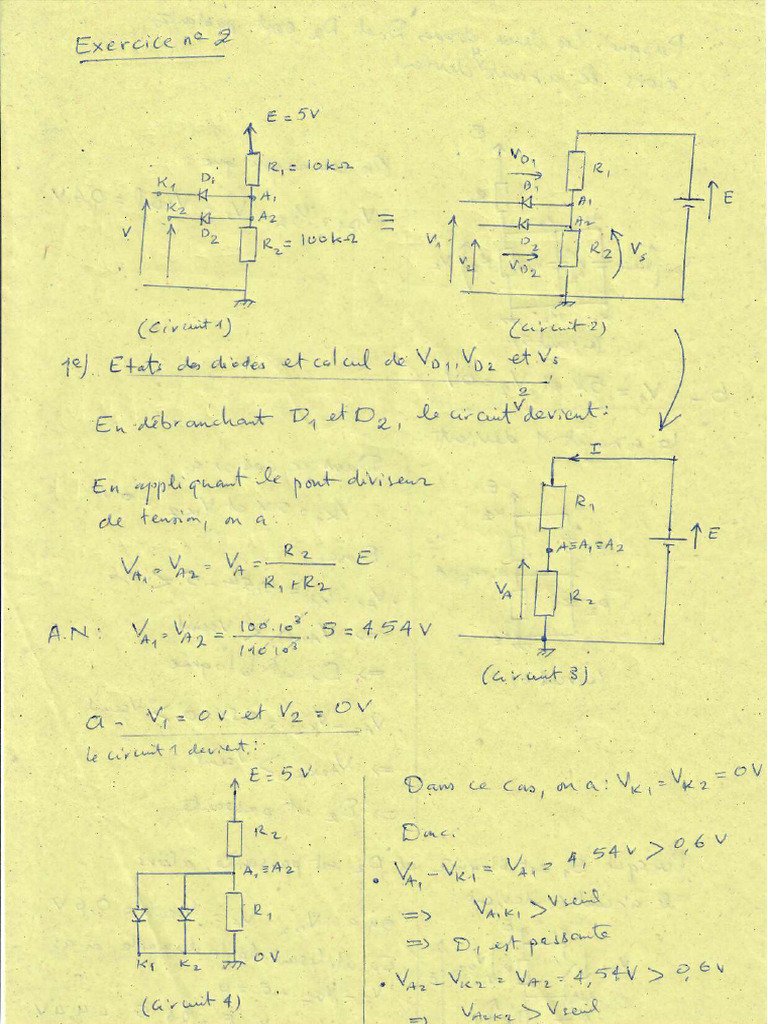 Exercice n° 2
E = 5V
R1 = 10kΩ
K1 D1 A1
K2 A2
D2
R2 = 100kΩ
V
≡
(Circuit 1)
VD1 R1
D1 A1 E
A2
V1 V2 D2 R2 Vs
VD2
(Circuit 2)
1°). Etats des diodes et calcul de VD1, VD2 et Vs
En débranchant D1 et D2, le circuit devient:
En appliquant le pont diviseur
de tension, on a
VA1 = VA2 = VA = R2 / (R1 + R2) . E
A.N: VA1 = VA2 = 100.10³ / 110.10³ . 5 = 4,54 V
I
R1
A≡A1≡A2 E
VA R2
(Circuit 3)
a - V1 = 0V et V2 = 0V
le circuit 1 devient:
E = 5V
R2
A1≡A2
R1
K1 K2 0V
(Circuit 4)
Dans ce cas, on a: VK1 = VK2 = 0V
Donc:
• VA1 - VK1 = VA1 = 4,54V > 0,6V
=> VA1K1 > Vseuil
=> D1 est passante
• VA2 - VK2 = VA2 = 4,54V > 0,6V
=> VA2K2 > Vseuil